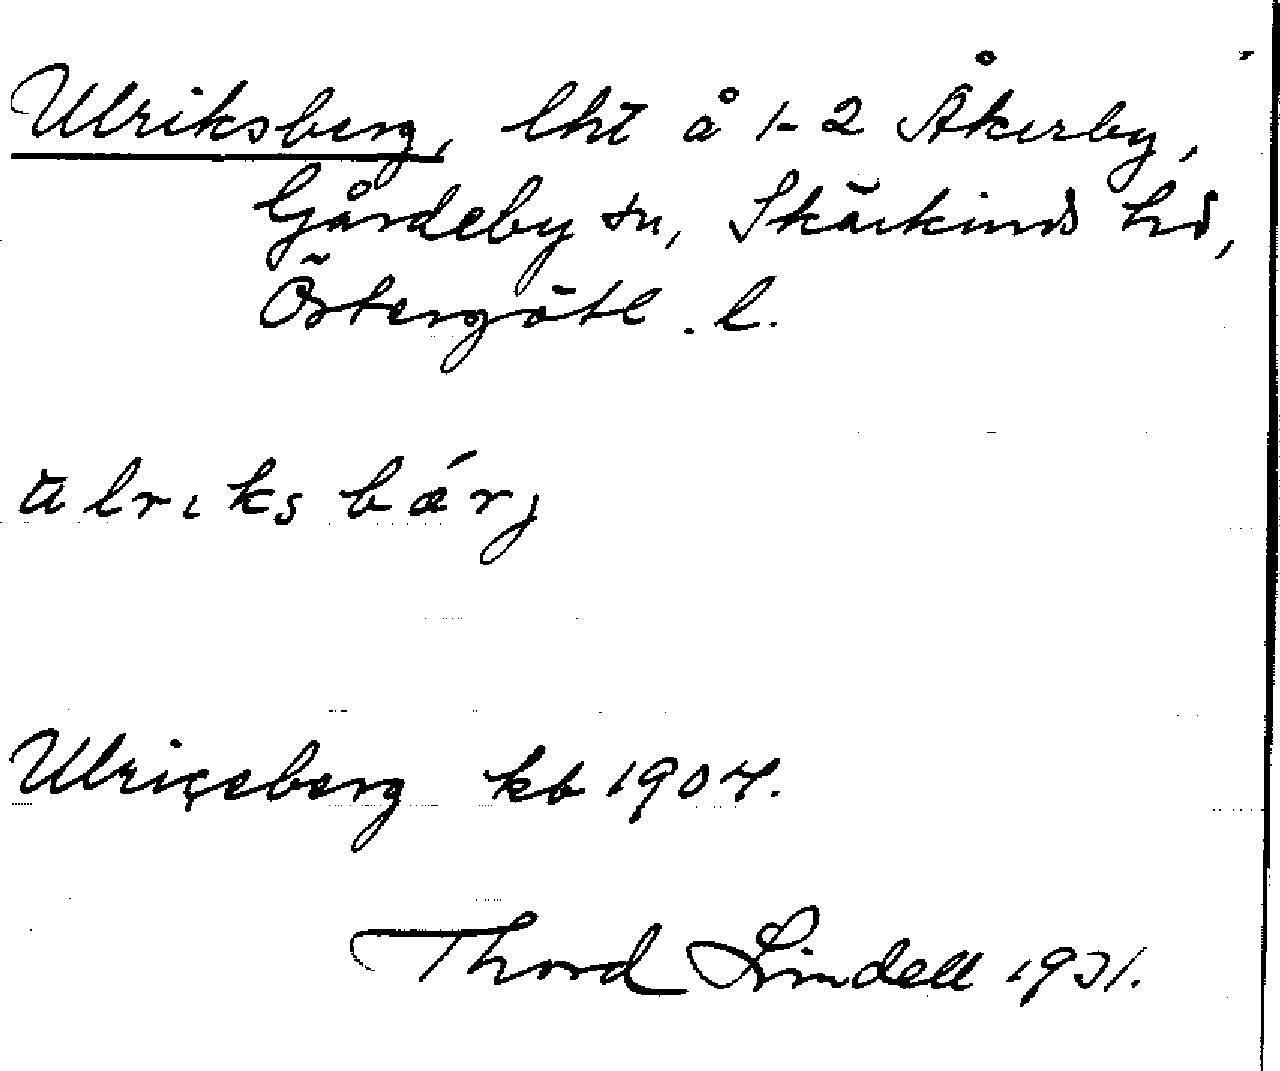 Ulriksberg, lht å 1-2 Åkerby,
Gårdeby sn, Skärkinds hd,
Östergötl. l.
ulriks bárj
Ulricseberg kb 1904.
Thord Lindell 1931.